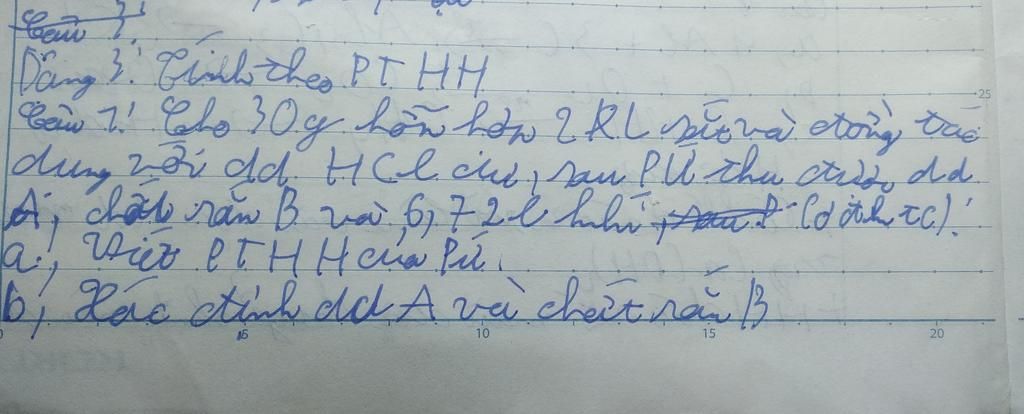 Câu 1.
Dạng 3: Tính theo PTHH
Câu 1: Cho 30g hỗn hợp 2 KL sắt và đồng tác
dụng với dd HCl dư, sau PƯ thu được dd
A, chất rắn B và 6,72l khí (ở đktc).
a, Viết PTHH của PƯ.
b, Xác định dd A và chất rắn B